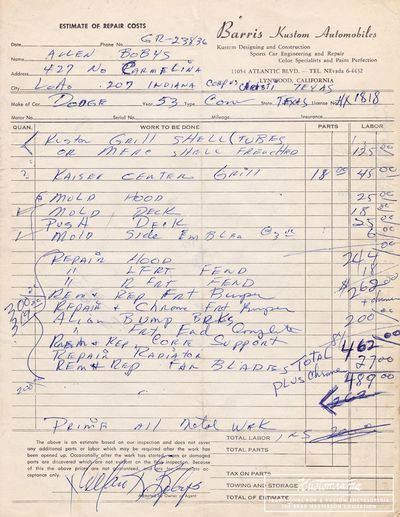 ESTIMATE OF REPAIR COSTS
Barris Kustom Automobiles
Kustom Designing and Construction
Sports Car Engineering and Repair
Color Specialists and Paint Perfection
11054 ATLANTIC BLVD. — TEL. NEvada 6-4432
LYNWOOD, CALIFORNIA
Date Phone No. GR-23836
Name ALLEN BOBYS
Address 427 No CARMELINA
City L.A. 207 INDIANA CORPUS CHRISTI TEXAS
Make of Car DODGE Year 53 Type Conv State TEXAS License No. HX 1818
Motor No. Serial No. Mileage Insurance
QUAN. WORK TO BE DONE PARTS LABOR
Kustom Grill SHELL (TUBES
OR MERC SHELL FRENCHED 125 00
? KAISER CENTER Grill 18 00 45 00
MOLD HOOD 25 00
MOLD DECK 18 00
PUSH DECK 25 00
1 MOLD Side EmBLem @3 00 6 00
REPAIR HOOD 244
" LFRT FEND 18
" R FRT FEND $262 00
REM & REP FRT Bumper + chrome
300 00 REPAIR & Chrome Frt Bumper
Align Bump BRKS 200 00
" Frt End Complete
REM & Rep CORE Support TOTAL 462 00
REPAIR RADIATOR 27 00
REM & Rep FAN BLADES PLUS Chrome 489 00
200 00 262
PRIME All Metal Work
The above is an estimate based on our inspection and does not cover
any additional parts or labor which may be required after the work has
been opened up. Occasionally after the work has started worn or damaged
parts are discovered which are not evident on first inspection. Because
of this the above prices are not guaranteed
ceptance only.
TOTAL LABOR INS
TOTAL PARTS
TAX ON PARTS
TOWING AND STORAGE
TOTAL OF ESTIMATE
Kustomrama